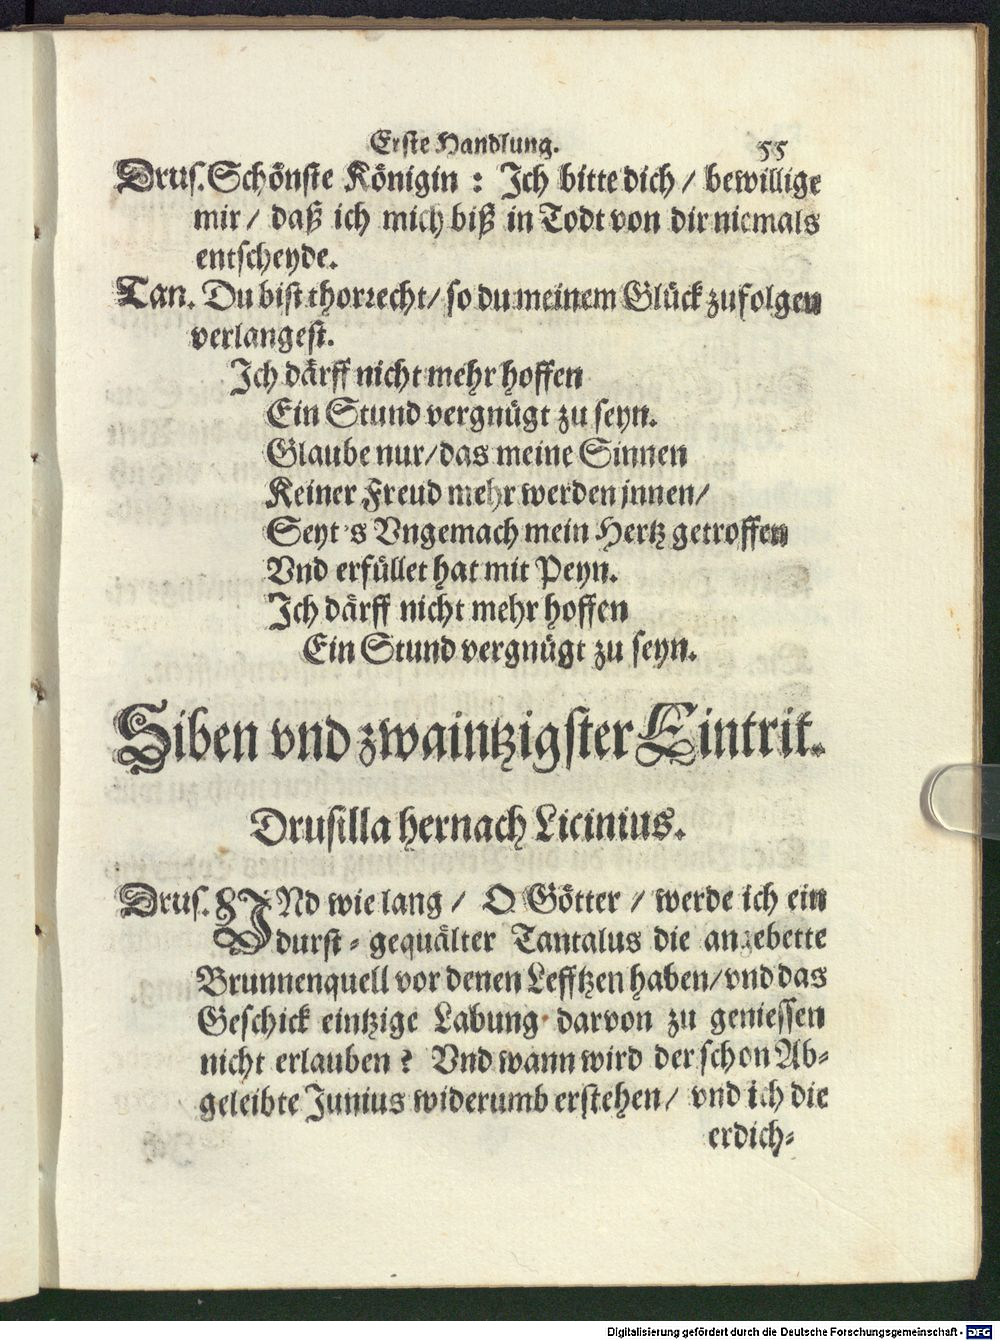 Erste Handlung. 55
Drus. Schönste Königin : Ich bitte dich / bewillige
mir / daß ich mich biß in Todt von dir niemals
entscheyde.
Tan. Du bist thorrecht / so du meinem Glück zufolgen
verlangest.
Ich därff nicht mehr hoffen
Ein Stund vergnügt zu seyn.
Glaube nur / das meine Sinnen
Keiner Freud mehr werden jnnen /
Seyt's Vngemach mein Hertz getroffen
Vnd erfüllet hat mit Peyn.
Ich därff nicht mehr hoffen
Ein Stund vergnügt zu seyn.
Siben vnd zwaintzigster Eintrit.
Drusilla hernach Licinius.
Drus. VNd wie lang / O Götter / werde ich ein
durst-gequälter Tantalus die angebette
Brunnenquell vor denen Lefftzen haben / vnd das
Geschick eintzige Labung darvon zu geniessen
nicht erlauben ? Vnd wann wird der schon Ab-
geleibte Junius widerumb erstehen / vnd ich die
erdich-
Digitalisierung gefördert durch die Deutsche Forschungsgemeinschaft - DFG